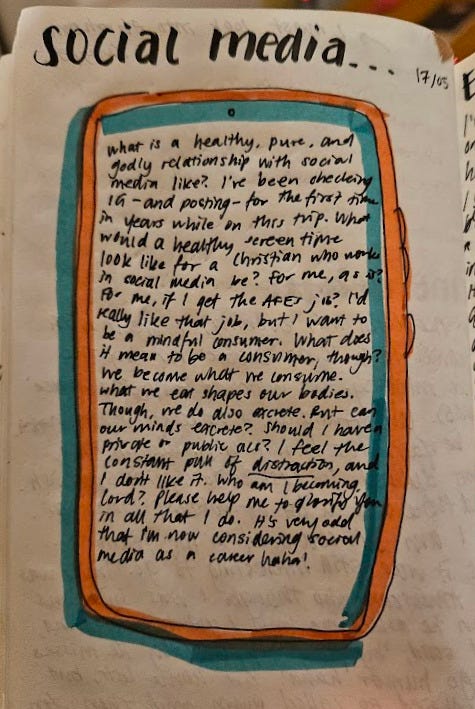 social media...
17/05
what is a healthy, pure, and
godly relationship with social
media like? I've been checking
IG - and posting - for the first time
in years while on this trip. What
would a healthy screen time
look like for a Christian who works
in social media be? For me, as is?
For me, if I get the AFES job? I'd
really like that job, but I want to
be a mindful consumer. What does
it mean to be a consumer, though?
We become what we consume.
What we eat shapes our bodies.
Though, we do also excrete. But can
our minds excrete? Should I have a
private or public acc? I feel the
constant pull of distraction, and
I don't like it. Who am I becoming,
Lord? Please help me to glorify you
in all that I do. It's very odd
that I'm now considering social
media as a career haha!